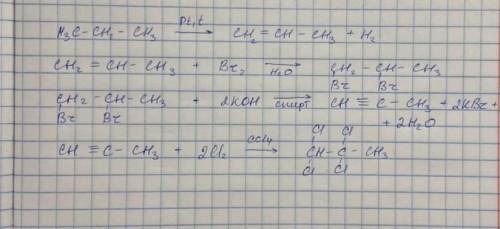 H₃C – CH₂ – CH₃ →(Pt, t) CH₂ = CH – CH₃ + H₂
CH₂ = CH – CH₃ + Br₂ →(H₂O) CH₂ – CH – CH₃
Br Br
CH₂ – CH – CH₃ + 2KOH →(спирт) CH ≡ C – CH₃ + 2KBr +
Br Br + 2H₂O
Cl Cl
CH ≡ C – CH₃ + 2Cl₂ →(CCl₄) CH – C – CH₃
Cl Cl